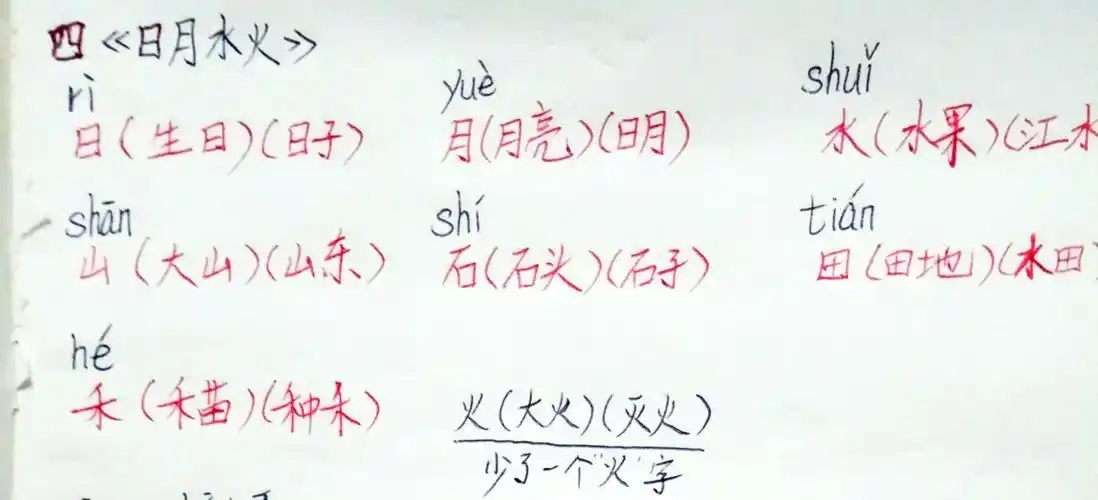 四《日月水火》
rì yuè shuǐ
日(生日)(日子) 月(月亮)(明月) 水(水果)(江水
shān shí tián
山(大山)(山东) 石(石头)(石子) 田(田地)(水田)
hé
禾(禾苗)(种禾) 火(大火)(灭火)
少了一个"火"字